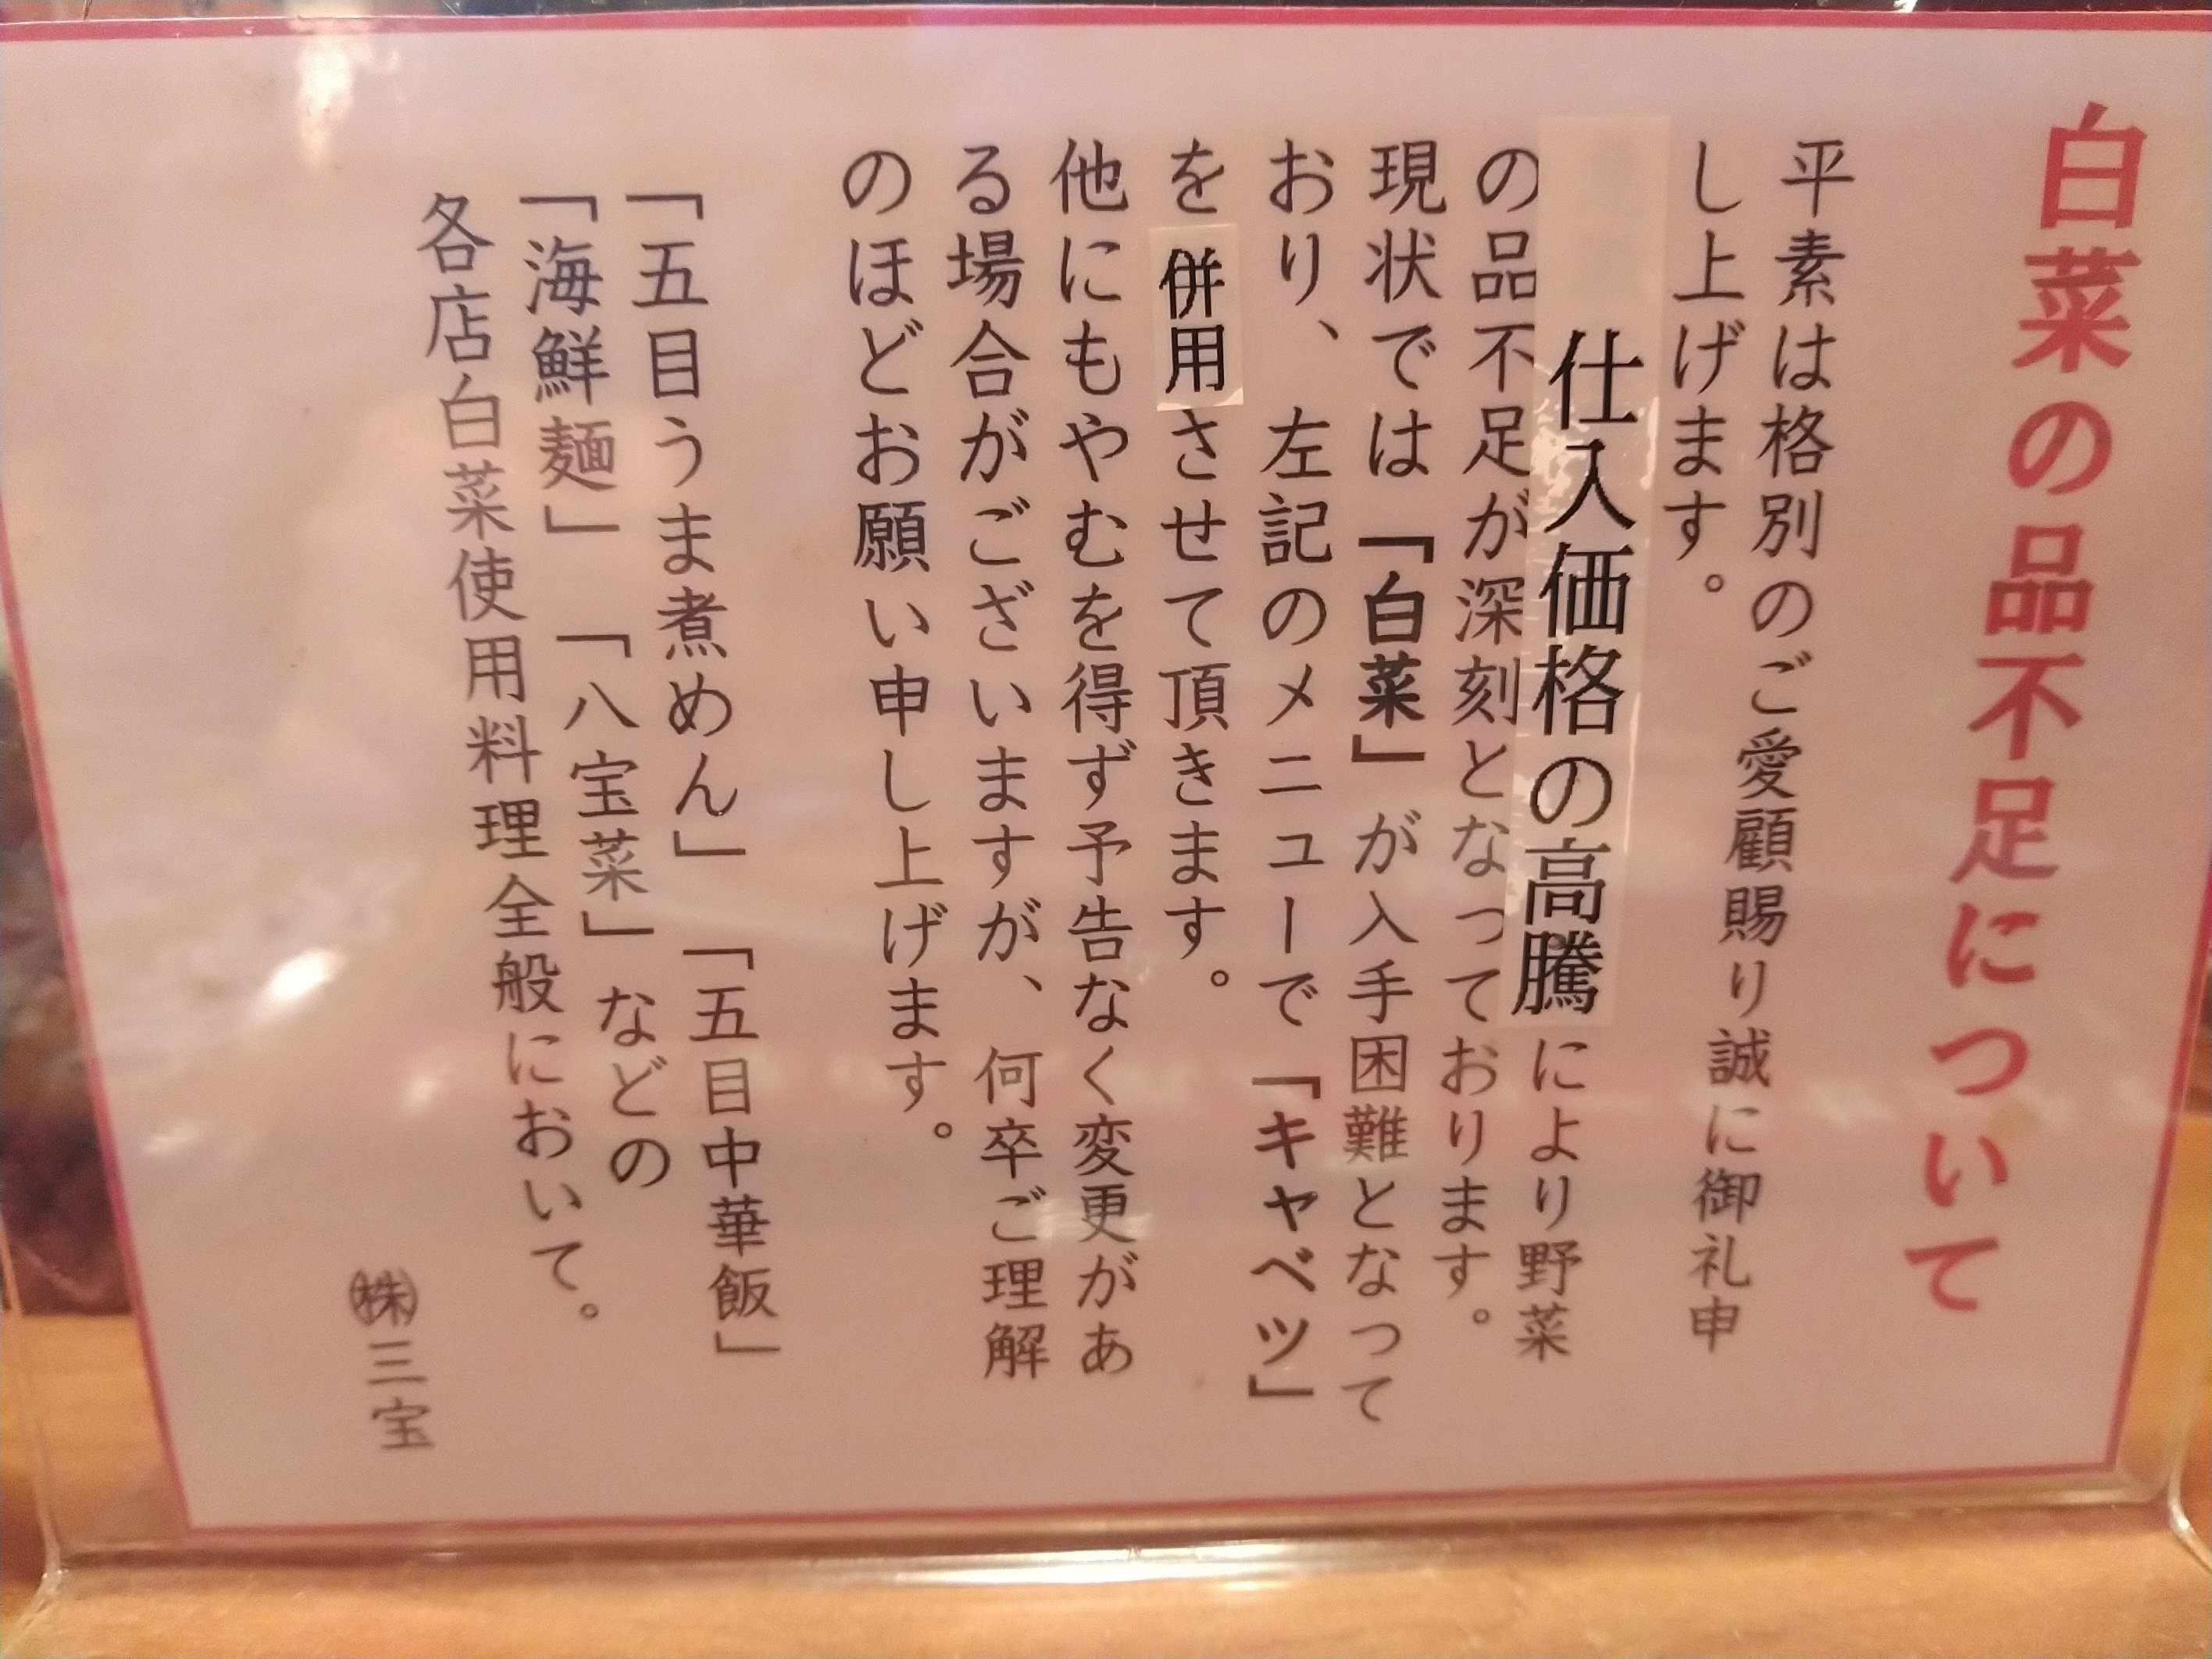 白菜の品不足について
平素は格別のご愛顧賜り誠に御礼申
し上げます。
仕入価格の高騰により野菜
の品不足が深刻となっております。
現状では「白菜」が入手困難となって
おり、左記のメニューで「キャベツ」
を併用させて頂きます。
他にもやむを得ず予告なく変更があ
る場合がございますが、何卒ご理解
のほどお願い申し上げます。
「五目うま煮めん」「五目中華飯」
「海鮮麺」「八宝菜」などの
各店白菜使用料理全般において。
㈱三宝